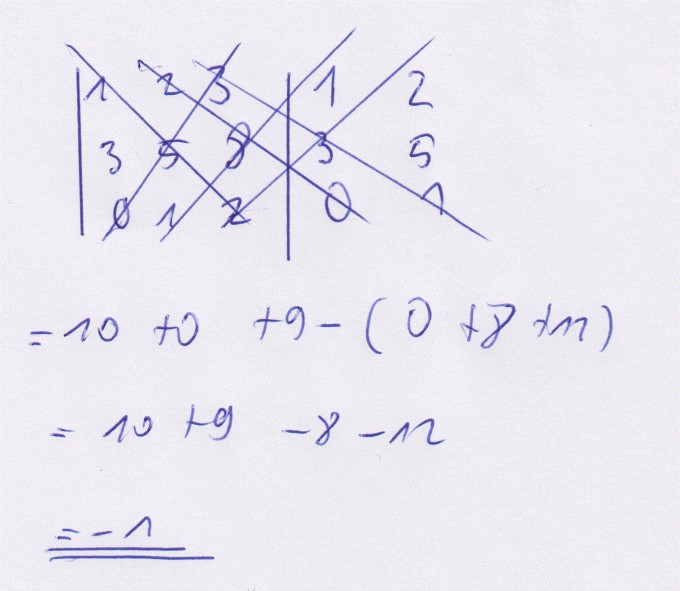 | 1 2 3 | 1 2
3 5 8 3 5
0 1 2 0 1
= 10 +0 +9 - ( 0 +8 +12)
= 10 +9 -8 -12
= -1